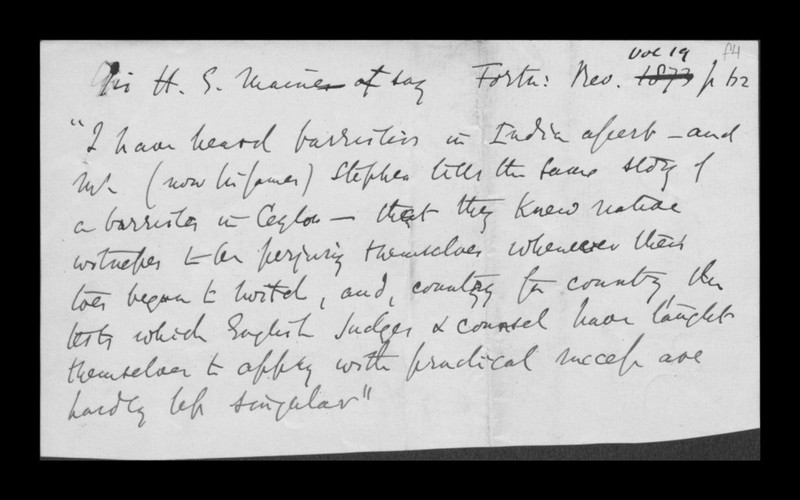 Vol 19 f4
Sir H. S. Maine of say Fortn: Rev. 1873 p 62
"I have heard barristers in India assert – and
Mr. (now Sir James) Stephen tells the same story of
a barrister in Ceylon – that they knew native
witnesses to be perjuring themselves whenever their
toes began to twitch, and, country for country, the
tests which English Judges & counsel have taught
themselves to apply with practical success are
hardly less singular"